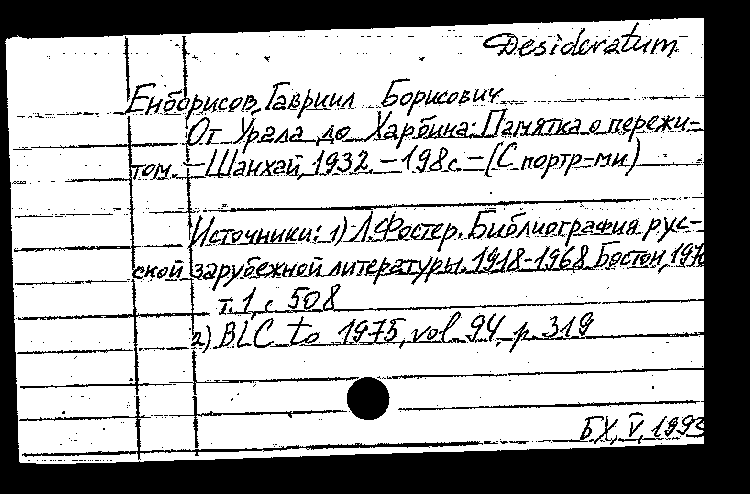 Desideratum
Енборисов, Гавриил Борисович
От Урала до Харбина: Памятка о пережи-
том. – Шанхай, 1932. – 198 с. – (С портр-ми)
Источники: 1) Л. Фостер. Библиография рус-
ской зарубежной литературы. 1918-1968. Бостон, 197
т. 1, с. 508
2) BLC to 1975, vol. 94, p. 319
БХ, V, 1993